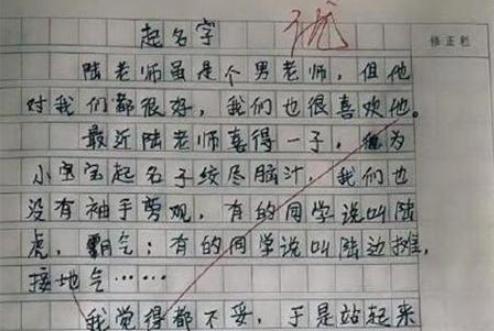 起名字
优
修正栏
陆老师虽是个男老师，但他
对我们都很好，我们也很喜欢他。
最近陆老师喜得一子，为
小宝宝起名子绞尽脑汁，我们也
没有袖手旁观，有的同学说叫陆
虎，霸气；有的同学说叫陆边摊，
接地气……
我觉得都不妥，于是站起来